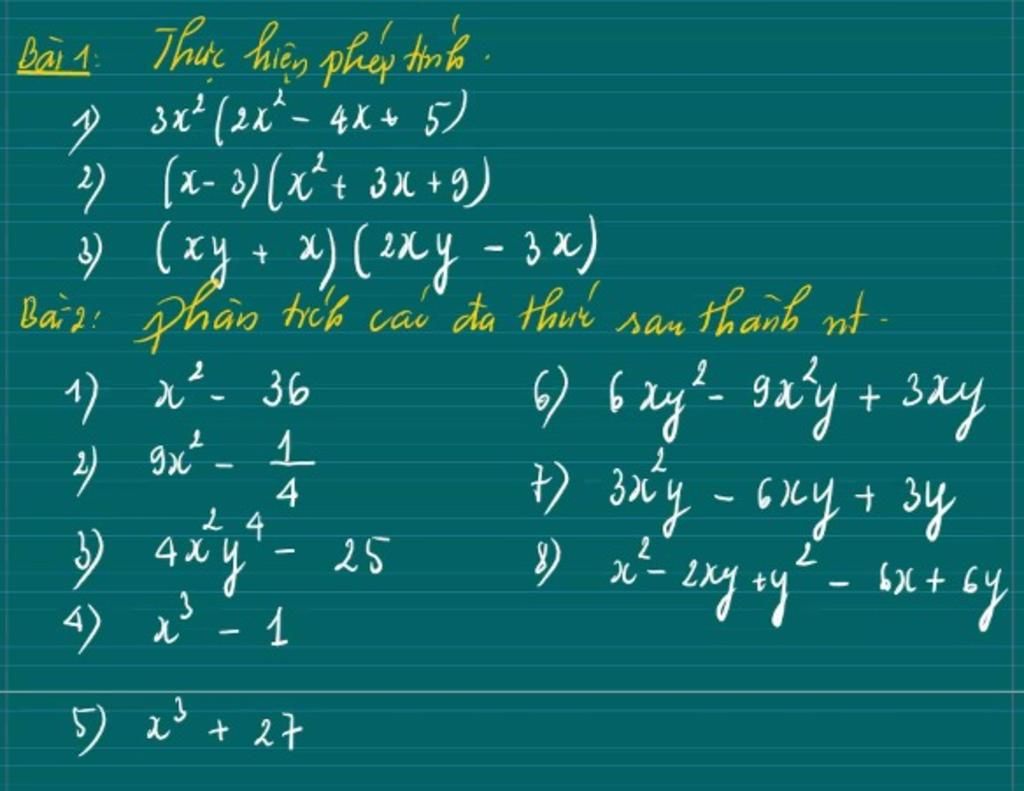 Bài 1: Thực hiện phép tính.
1) 3x² (2x² - 4x + 5)
2) (x - 3)(x² + 3x + 9)
3) (xy + x)(2xy - 3x)
Bài 2: phân tích các đa thức sau thành nt.
1) x² - 36
2) 9x² - 1/4
3) 4x²y⁴ - 25
4) x³ - 1
5) x³ + 27
6) 6xy² - 9x²y + 3xy
7) 3x²y - 6xy + 3y
8) x² - 2xy + y² - 6x + 6y